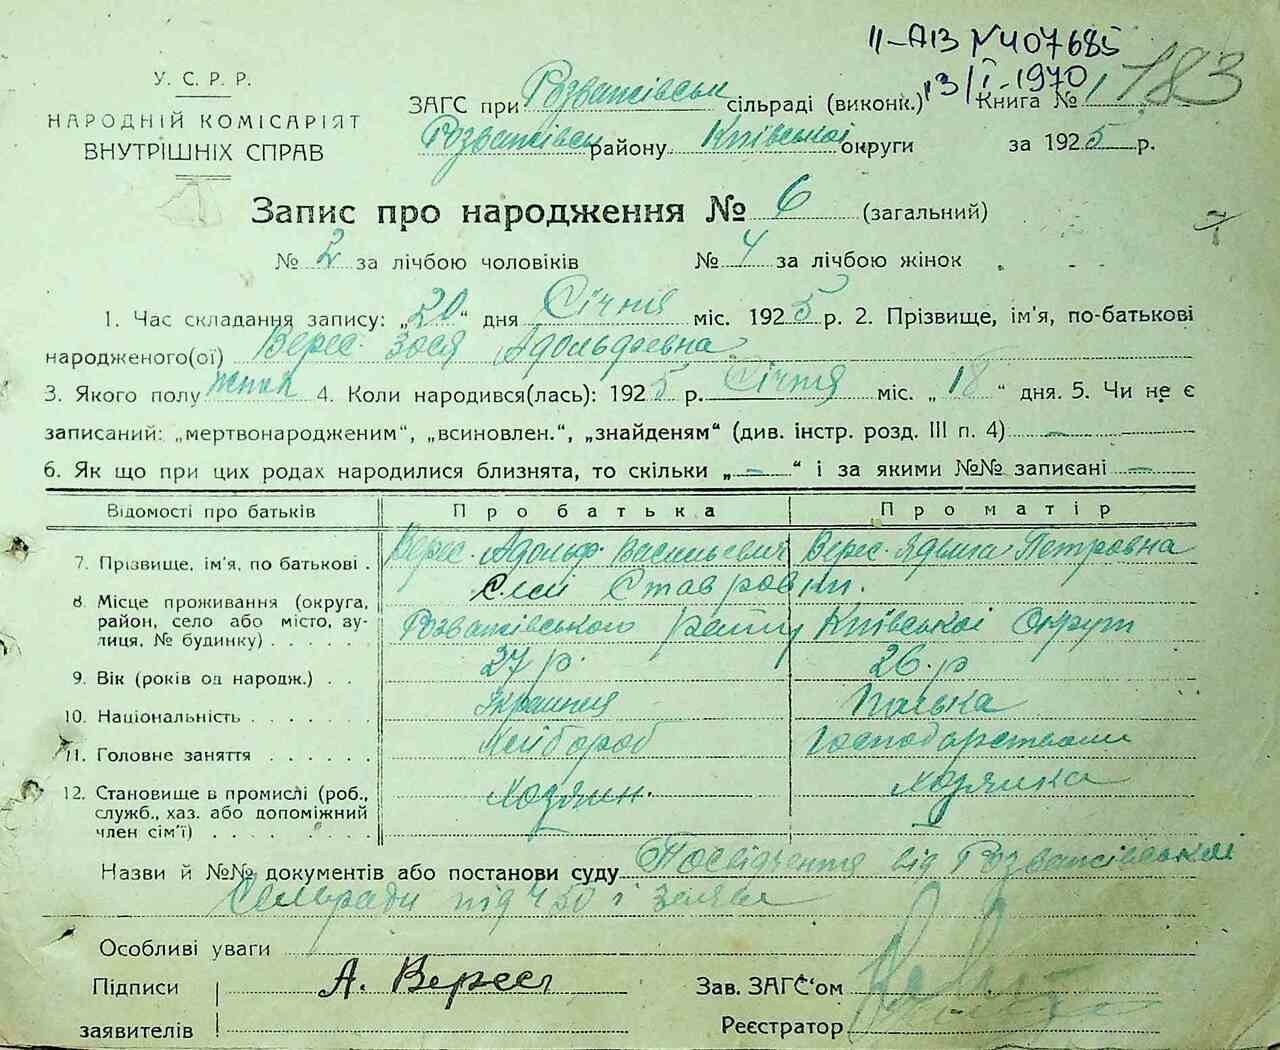 II-АІЗ №407685
13/I-1970
183
У. С. Р. Р.
НАРОДНІЙ КОМІСАРІЯТ
ВНУТРІШНІХ СПРАВ
ЗАГС при Розважівськ сільраді (виконк.) Книга № 1
Розважівськ району Київської округи за 1925 р.
Запис про народження № 6 (загальний)
№ 2 за лічбою чоловіків № 4 за лічбою жінок
1. Час складання запису: „20“ дня Січня міс. 1925 р. 2. Прізвище, ім'я, по-батькові
народженого(ої) Верес Зося Адольфевна
3. Якого полу жінк 4. Коли народився(лась): 1925 р. Січня міс. „18“ дня. 5. Чи не є
записаний: „мертвонародженим“, „всиновлен.“, „знайденям“ (див. інстр. розд. III п. 4) —
6. Як що при цих родах народилися близнята, то скільки „—“ і за якими №№ записані —
Відомості про батьків Про батька Про матір
7. Прізвище, ім'я, по батькові . Верес Адольф Васильевич Верес Ядвига Петровна
8. Місце проживання (округа, район, село або місто, вулиця, № будинку) . . . . . Ставровки.
Розважівського Київської Округи
9. Вік (років од народж.) . . 27 р. 26. р
10. Національність . . . . . . . Украинця Полька
11. Головне заняття . . . . . . Хлібороб Господарством
12. Становище в промислі (роб., служб., хаз. або допоміжний член сім'ї) . . . . . . . . Хозяин. Хозяика
Назви й №№ документів або постанови суду Посвідчення від Розважівськом
Сельради під 450 і заява
Особливі уваги
Підписи А. Верес Зав. ЗАГС'ом
заявителів Реєстратор